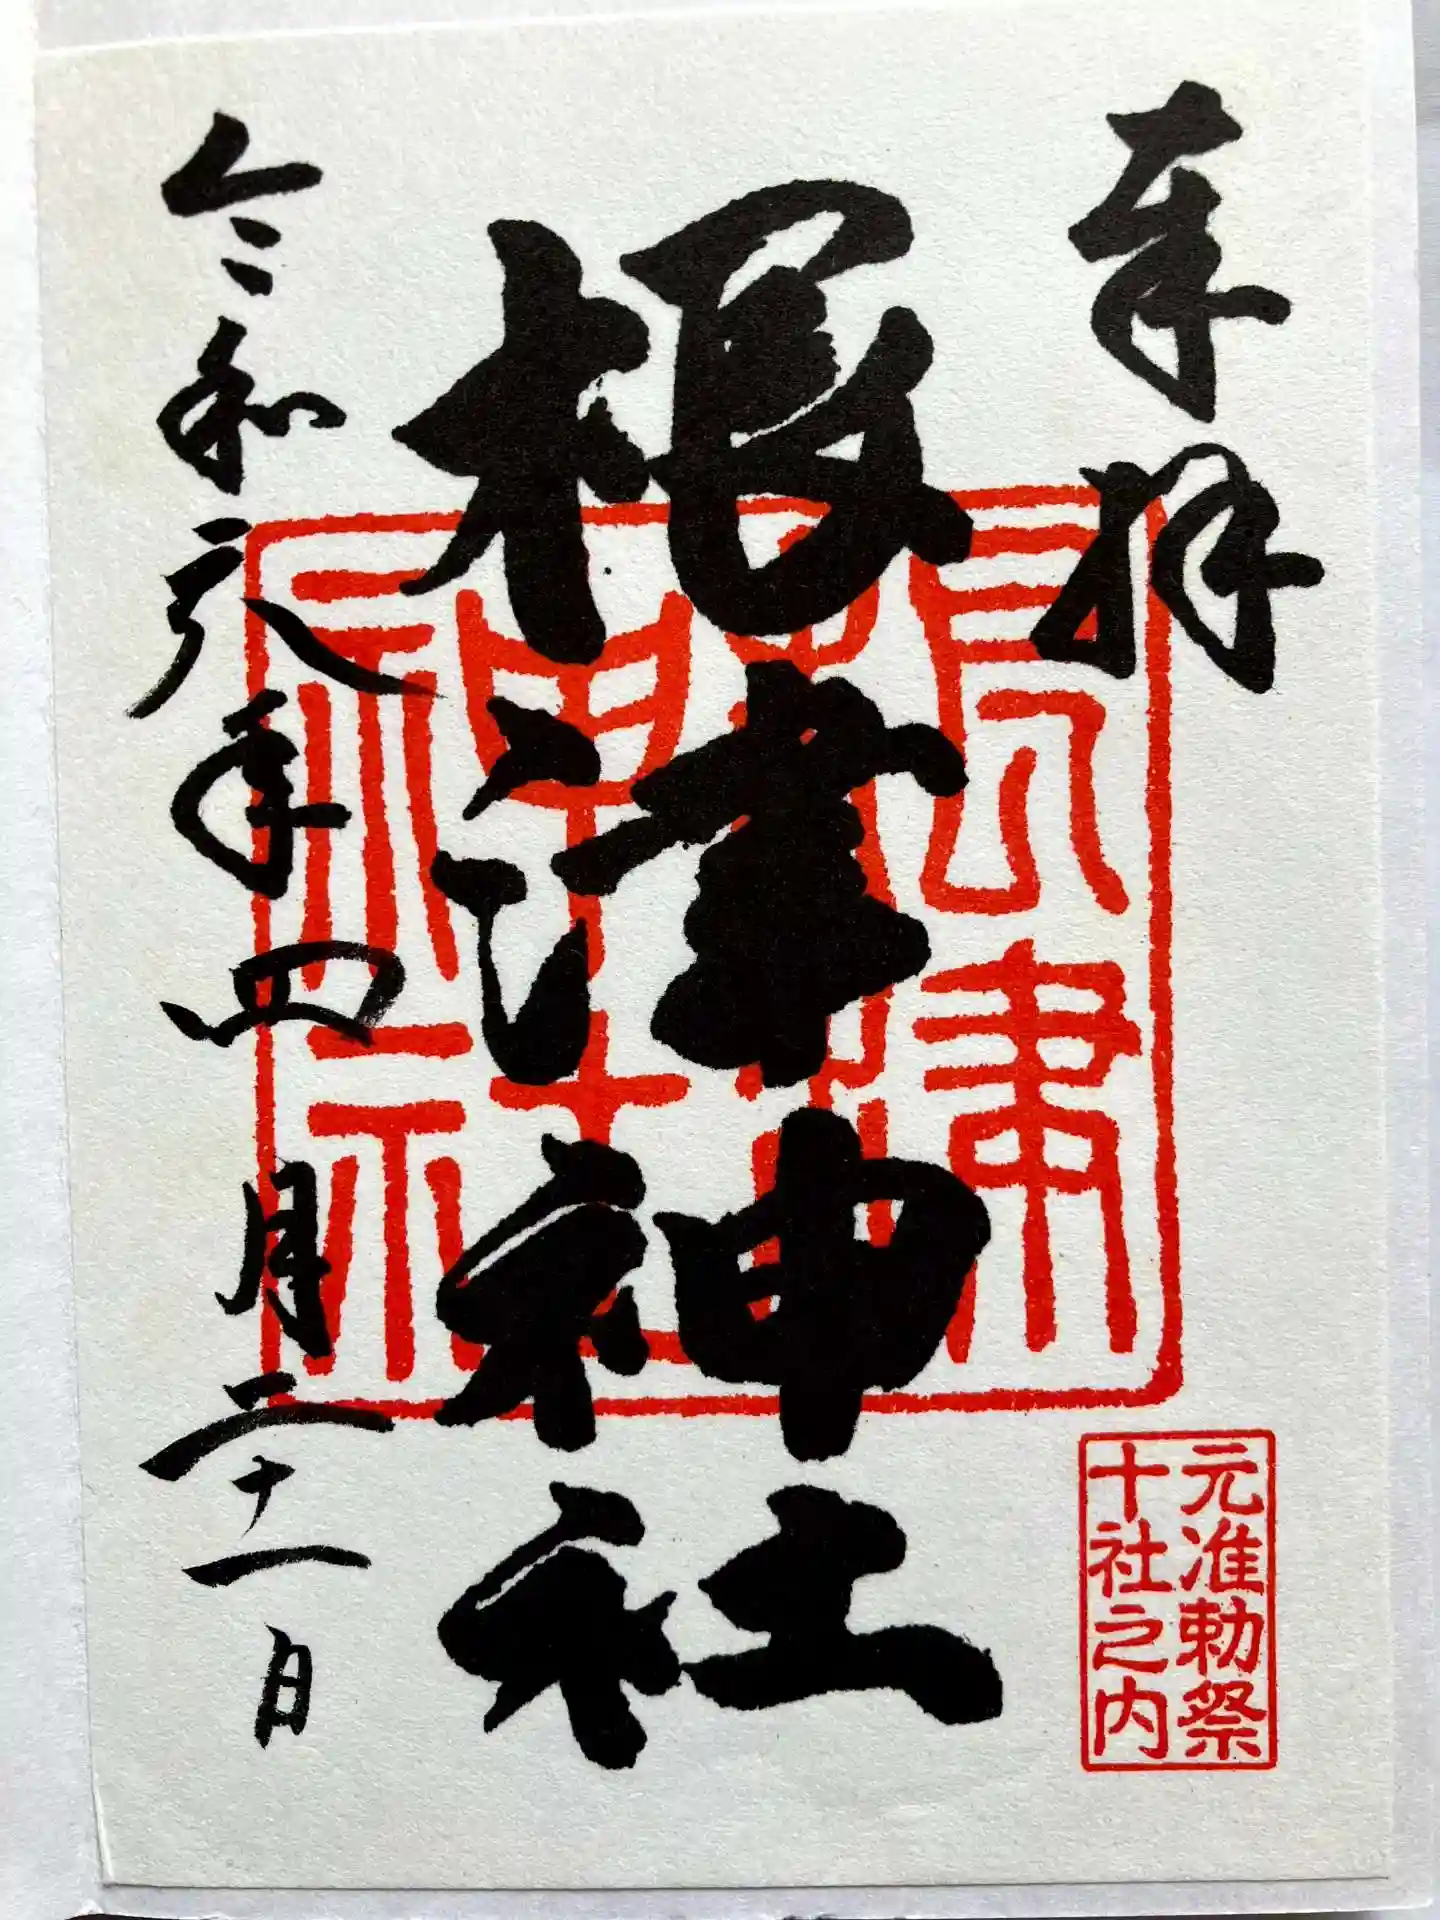 奉拝
根津神社
令和六年四月二十一日
根津
神社
元准勅祭
十社之内